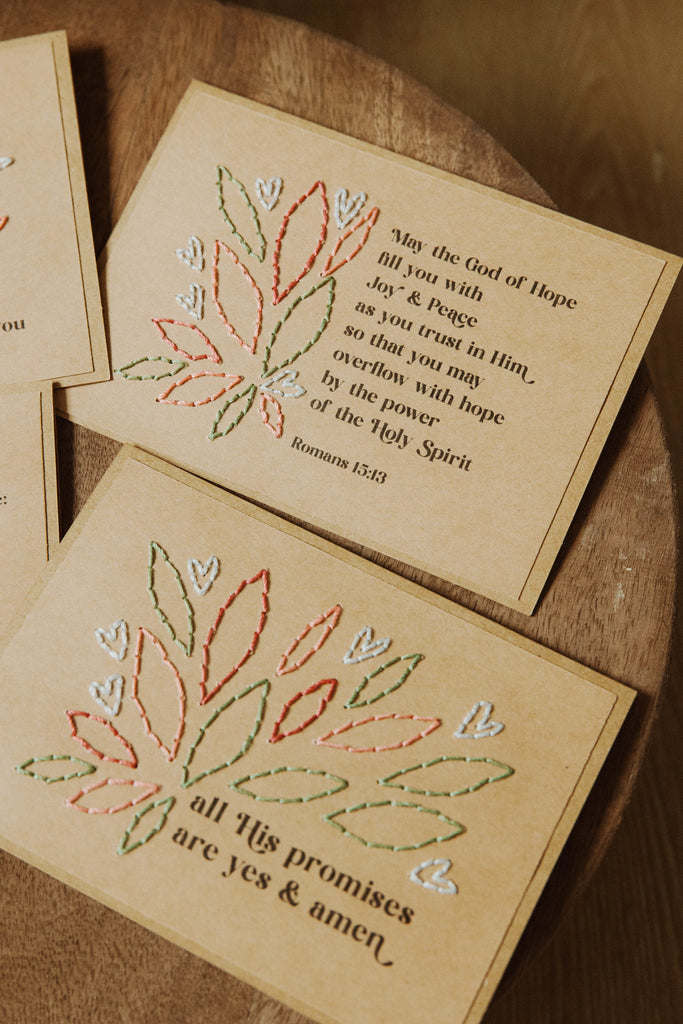 May the God of Hope
fill you with
Joy & Peace
as you trust in Him
so that you may
overflow with hope
by the power
of the Holy Spirit
Romans 15:13
you
e:
all His promises
are yes & amen